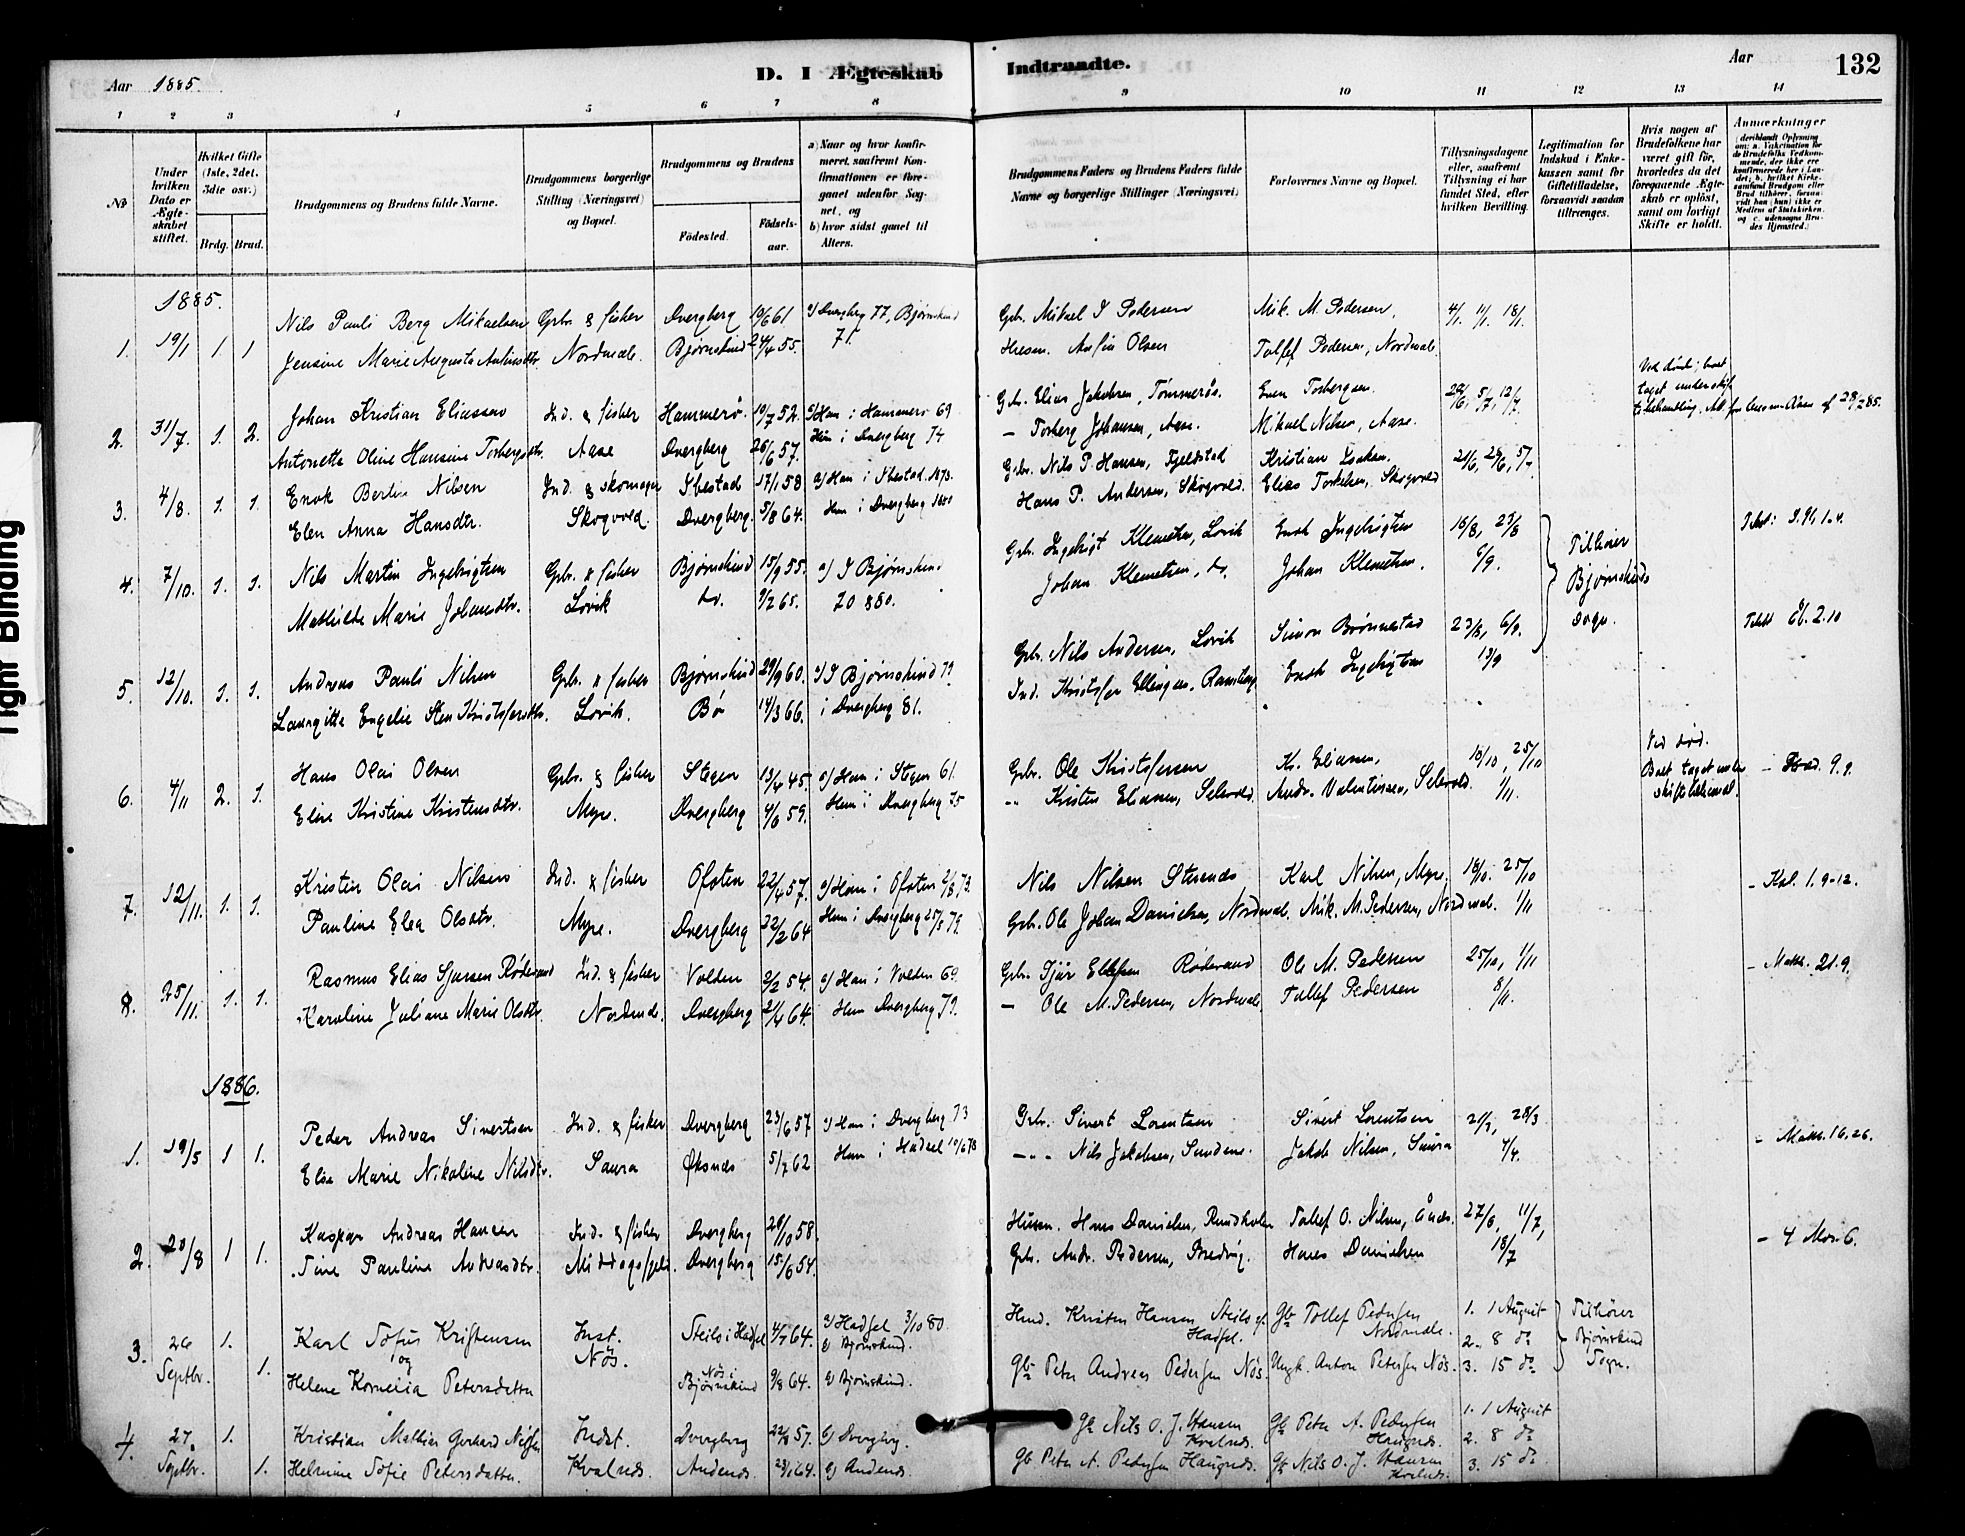 Aar 1885.
D. I Ægteskab
Indtraadte.
Aar
132
1 2 3 4 5 6 7 8
9 10 11 12 13 14
No
Under hvilken Dato er Ægteskabet stiftet.
Hvilket Gifte (1ste, 2det, 3die osv.)
Brdg. Brud.
Brudgommens og Brudens fulde Navne.
Brudgommens borgerlige Stilling (Næringsvei) og Bopæl.
Brudgommens og Brudens
Fødested.
Fødselsaar.
a) Naar og hvor konfirmeret, saafremt Konfirmationen er foregaaet udenfor Sognet, og
b) hvor sidst gaaet til Alters.
Brudgommens Faders og Brudens Faders fulde Navne og borgerlige Stillinger (Næringsvei)
Forlovernes Navne og Bopæl.
Tillysningsdagene eller, saafremt Tillysning ei har fundet Sted, efter hvilken Bevilling.
Legitimation for Indskud i Enkekassen samt for Giftetilladelse, forsaavidt saadan tiltrænges.
Hvis nogen af Brudefolkene har været gift før, hvorledes da det foregaaende Ægteskab er opløst, samt om lovligt Skifte er holdt.
Anmærkninger (deriblandt Oplysning om: a. Vakcination for de Brudefolks Vedkommende, der ikke ere konfirmerede her i Landet; b. hvilket Kirkesamfund Brudgom eller Brud tilhører, forsaavidt han (hun) ikke er Medlem af Statskirken, og c. udensogns Brudes Hjemsted.)
1885.
1. 19/1 1 1 Nils Pauli Berg Mikaelsen Grbr. & fisker Dvergberg 19/6 61 a) Dvergberg 77, Bjørnskind Gbr. Mikael I Pedersen Mik. M. Pedersen, 4/1. 11/1. 18/1.
Jensine Marie Augusta Antinsdtr. Nordmele. Bjørnskind 24/4 55. 71. Husm. Antin Olsen Tollef Pedersen, Nordmele
2. 31/7. 1. 2. Johan Kristian Eliassen Ind. & fisker Hammerø. 19/7 52. a) Han i Hammerø 69 Gbr. Elias Jakobsen, Tømmerås. Even Torbergsen. 28/6, 5/7, 12/7. Ved død; boet taget under skiftebehandling
Antonette Oline Hansine Torbergsdtr. Aase Dvergberg 26/6 57. Hun i Dvergberg 74 — Torberg Johansen, Aase. Mikael Nilsen, Aase.
3. 4/8. 1. 1. Enok Bertin Nilsen Ind. & skomager Ibestad 17/1 58 a) Han i Ibestad. 1873. Grbr. Nils P. Hansen, Fjeldstad Kristian Isaksen. 21/6, 28/6, 5/7
Elen Anna Hansdtr. Skogvold. Dvergberg. 5/8 64. Hun i Dvergberg 1880 Hans P. Andersen, Skogvold. Elias Torkelsen, Skogvold
4. 7/10. 1. 1. Nils Martin Ingebrigtsen Grbr. & fisker Bjørnskind 15/9 55. a) I Bjørnskind Grbr. Ingebrigt Klemetsen, Lovik Enok Ingebrigtsen 16/8, 23/8 Tilhører Bjørnskinds Sogn.
Mathilde Marie Johansdtr. Lovik do. 9/2 65. 70 & 80. Johan Klemetsen, do. Johan Klemetsen. 6/9.
5. 12/10. 1. 1. Andreas Pauli Nilsen Grbr. & fisker Bjørnskind 29/9 60. a) I Bjørnskind 79 Grbr. Nils Andersen, Lovik Simon Brønnestad 23/8, 6/9.
Lauritte Engelie Sten Kristoffersdtr. Lovik. Bø 14/3 66. i Dvergberg 81. Ind. Kristoffer Ellingsen, Ramsberg Enok Ingebrigtsen 13/9
6. 4/11 2. 1. Hans Olai Olsen Grbr. & fisker Stegen 13/4 45. a) Han i Stegen 61. Grbr. Ole Kristoffersen K. Eliassen, 18/10, 25/10 Ved død. Boet taget under skiftebehandl.
Eline Kristine Kristensdtr. Myre. Dvergberg 4/6 59. Hun i Dvergberg 75 — Kristen Eliassen, Selevold. Andr. Valentinsen, Selevold. 1/11.
7. 12/11. 1. 1. Kristin Olai Nilsen Ind. & fisker Ofoten 22/4 57. a) Han i Ofoten 2/8 73. Nils Nilsen Strands Karl Nilsen, Myre. 18/10. 25/10 - Kol. 1. 9-12.
Pauline Elea Olsdtr. Myre. Dvergberg 22/2 64 Hun i Dvergberg 25/5 79. Grbr. Ole Johan Danielsen, Nordmel. Mik. M. Pedersen, Nordmel. 1/11
8. 25/11. 1. 1. Rasmus Elias Sjursen Røderand Ind. & fisker Volden 2/2 54. a) Han i Volden 69. Grbr. Sjur Ellefsen Røderand Ole M. Pedersen 25/10, 1/11 - Matth. 21.9.
Karoline Juliane Marie Olsdtr. Nordmele. Dvergberg 2/4 64. Hun Dvergberg 79. — Ole M. Pedersen, Nordmele Tollef Pedersen 8/11.
1886.
1. 19/5 1 1. Peder Andreas Sivertsen Ind. & fisker Dvergberg 23/6 57 a) Han i Dvergberg 73 Grbr. Sivert Lorentsen Sivert Lorentsen 21/3, 28/3 - Matth. 16.26.
Elise Marie Nikoline Nilsdtr. Saura Øksnes 5/7 62 Hun i Hadsel 10/6 78 — Nils Jakobsen, Sundene. Jakob Nilsen, Saura 4/4.
2. 20/8 1 1. Kaspar Andreas Hansen Ind. & fisker Dvergberg 28/10 58. Husm. Hans Danielsen, Rundholm Tollef O. Nilsen, Åndes. 27/6, 11/7, - 4 Mos. 6.
Tine Pauline Andreasdtr. Middagsfjeld. Dvergberg 15/6 54. Grbr. Andr. Pedersen, Bredvig. Hans Danielsen 18/7
3. 26 Septbr. 1. Karl Tofus Kristensen Inst. Nøs. Steilo i Hadsel 4/7 64. a) Hadsel 3/10 80. b) Bjørnskind. Husm. Kristen Hansen Steilo af Hadsel. Gbr Tollef Pedersen Nordmele. 1. 1 August 2. 8 do Tilhører Bjørnskind Sogn.
1. og Helene Kornelia Petersdatter Nøs i Bjørnskind 9/8 64. b) Bjørnskind. Gbr Peter Andreas Pedersen Nøs. Ungk. Anton Petersen Nøs. 3. 15 do
4. 27. Septbr. 1. Kristian Mathias Gerhard Nilsen Indst. Dvergberg 22/8 57. b) Dvergberg. Gbr Nils O. J. Hansen Kvalnes. Gbr Peter A. Pedersen Haugnes. 1. 1 August 2. 8 do
1. Helmine Sofie Petersdatter. Kvalnes. Andenes. 23/1 64. b) Andenes. Gbr Peter A. Pedersen Haugnes. Gbr Nils O. J. Hansen Kvalnes. 3. 15 do
Tight Binding